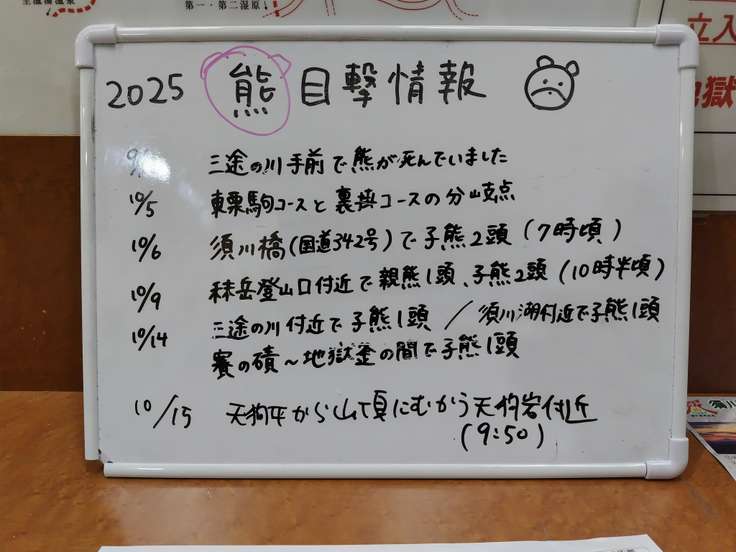 至温湯温泉
第一・第二湿原
立入
地獄
2025 熊目撃情報
三途の川手前で熊が死んでいました
10/5 東栗駒コースと裏掛コースの分岐点
10/6 須川橋(国道342号)で子熊2頭(7時頃)
10/9 秣岳登山口付近で親熊1頭、子熊2頭(10時半頃)
10/14 三途の川付近で子熊1頭/須川湖付近で子熊1頭
賽の磧~地獄釜の間で子熊1頭
10/15 天狗平から山頂にむかう天狗岩付近
(9:50)